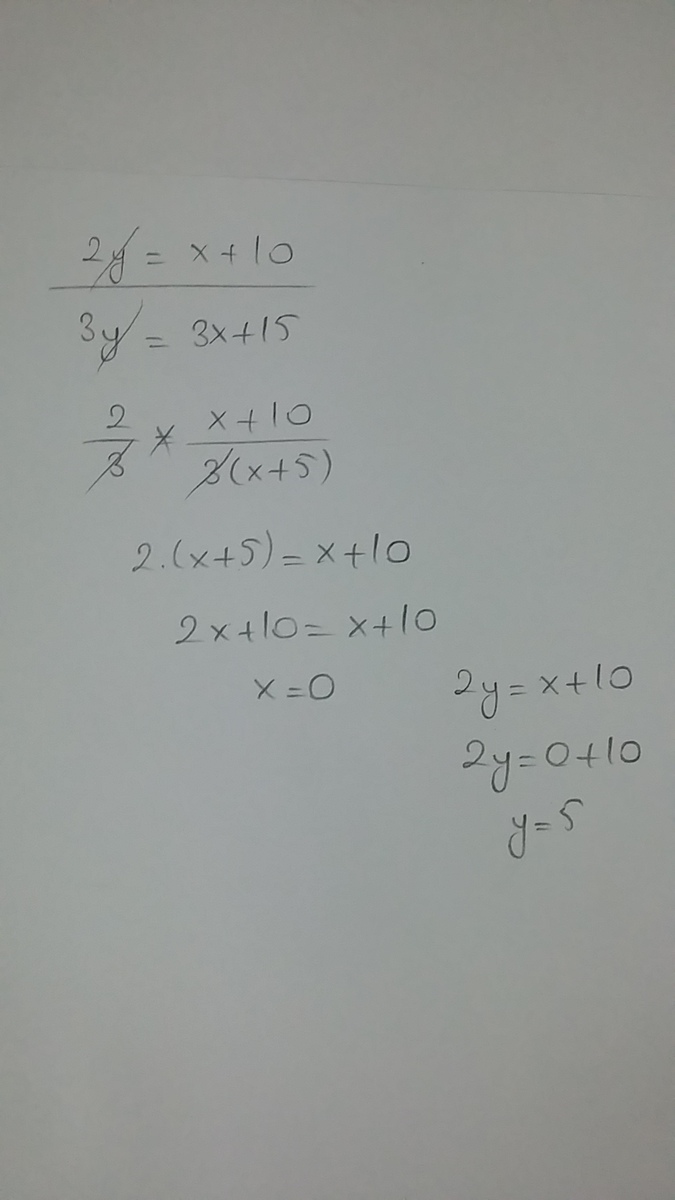 2y = x + 10
3y = 3x + 15
2/3 × x + 10/3(x + 5)
2.(x+5) = x+10
2x+10 = x+10
x = 0
2y = x+10
2y = 0+10
y = 5